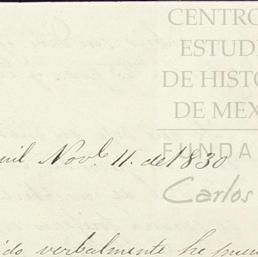 CENTRO
ESTUDI
DE HISTO
DE MEX
FUNDA
Carlos
uil Nov.e 11. de 1830
ido verbalmente he